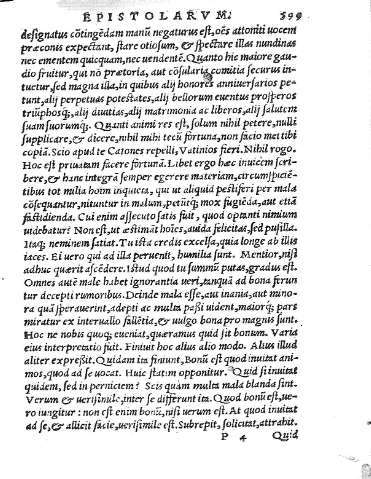 EPISTOLARVM. 599
designatus cōtingēdam manū negaturus est, oēs attoniti uocem
præconis expectant, stare otiosum, & spectare illas nundinas
nec ementem quicquam, nec uendentē. Quanto hic maiore gau-
dio fruitur, qui nō prætoria, aut cōsularia comitia securus in-
tuetur, sed magna illa, in quibus alij honores anniuersarios pe-
tunt, alij perpetuas potestates, alij bellorum euentus prosperos
triūphosq;, alij diuitias, alij matrimonia ac liberos, alij salutem
suam suorumq;. Quanti animi res est, solum nihil petere, nulli
supplicare, & dicere, nihil mihi tecū fortuna, non facio mei tibi
copiā. Scio apud te Catones repelli, Vatinios fieri. Nihil rogo.
Hoc est priuatam facere fortunā. Libet ergo hæc inuicem scri-
bere, & hanc integrā semper egerere materiam, circumspicie-
tibus tot milia hoīm inquieta, qui ut aliquid pestiferi per mala
cōsequantur, nituntur in malum, petūtq; mox fugiēda, aut etiā
fastidienda. Cui enim assecuto satis fuit, quod optanti nimium
uidebatur? Non est, ut æstimāt hoīes, auida felicitas, sed pusilla.
Itaq; neminem satiat. Tu ista credis excelsa, quia longe ab illis
iaces. Ei uero qui ad illa peruenit, humilia sunt. Mentior, nisi
adhuc quærit ascēdere. Istud quod tu summū putas, gradus est.
Omnes autē male habet ignorantia ueri, tanquā ad bona ferun
tur decepti rumoribus. Deinde mala esse, aut inania, aut mino-
ra quā sperauerint, adepti ac multa passi uident, maiorq; pars
miratur ex interuallo fallētia, & uulgo bona pro magnis sunt.
Hoc ne nobis quoq; eueniat, quæramus quid sit bonum. Varia
eius interpretatio fuit. Finiunt hoc alius alio modo. Alius illud
aliter expreßit. Quidam ita finiunt, Bonū est quod inuitat ani-
mos, quod ad se uocat. Huic statim opponitur. Quid si inuitat
quidem, sed in perniciem? Scis quàm multa mala blanda sint.
Verum & uerisimile, inter se differunt ita. Quod bonū est, ue-
ro iungitur: non est enim bonū, nisi uerum est. At quod inuitat
ad se, & allicit facie, uerisimile est. Subrepit, solicitat, attrahit.
P 4 Quid